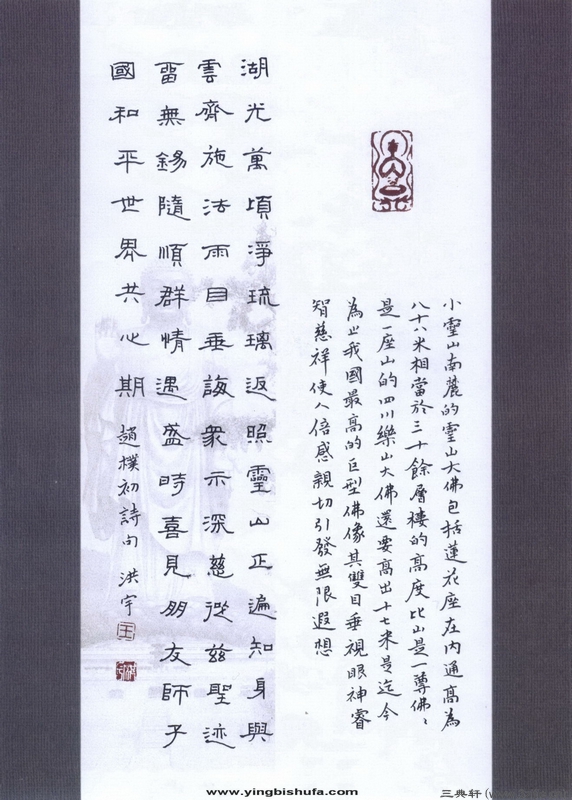 小靈山南麓的靈山大佛包括蓮花座在內通高為
八十八米相當於三十餘層樓的高度比山是一尊佛〻
是一座山的四川樂山大佛還要高出十七米是迄今
為止我國最高的巨型佛像其雙目垂視眼神睿
智慈祥使人倍感親切引發無限遐想
湖光萬頃淨琉璃返照靈山正遍知身與
雲齊施法雨目垂誨眾示深慈從茲聖迹
畱無錫隨順群情遇盛時喜見朋友師子
國和平世界共心期 趙樸初詩句 洪宇
王
www.yingbishufa.com
三典轩(w